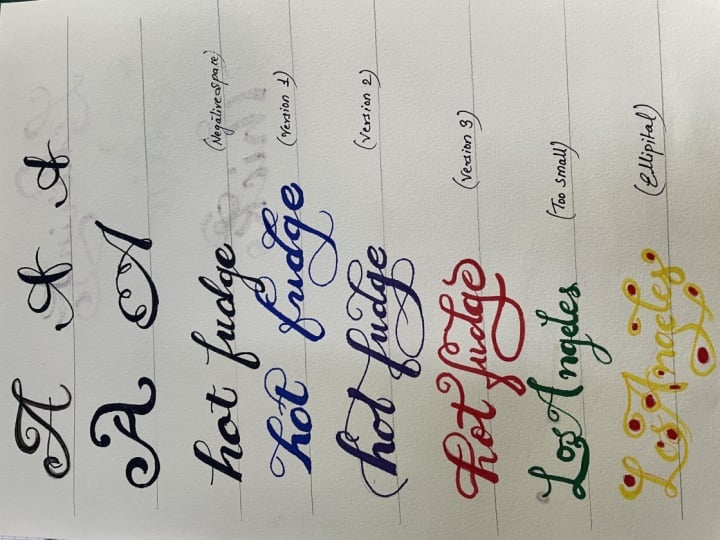 A A A
A A
hot fudge (Negative space)
hot fudge (Version 1)
hot fudge (Version 2)
hot fudge (Version 3)
Los Angeles (Too small)
Los Angeles (Ellipital)